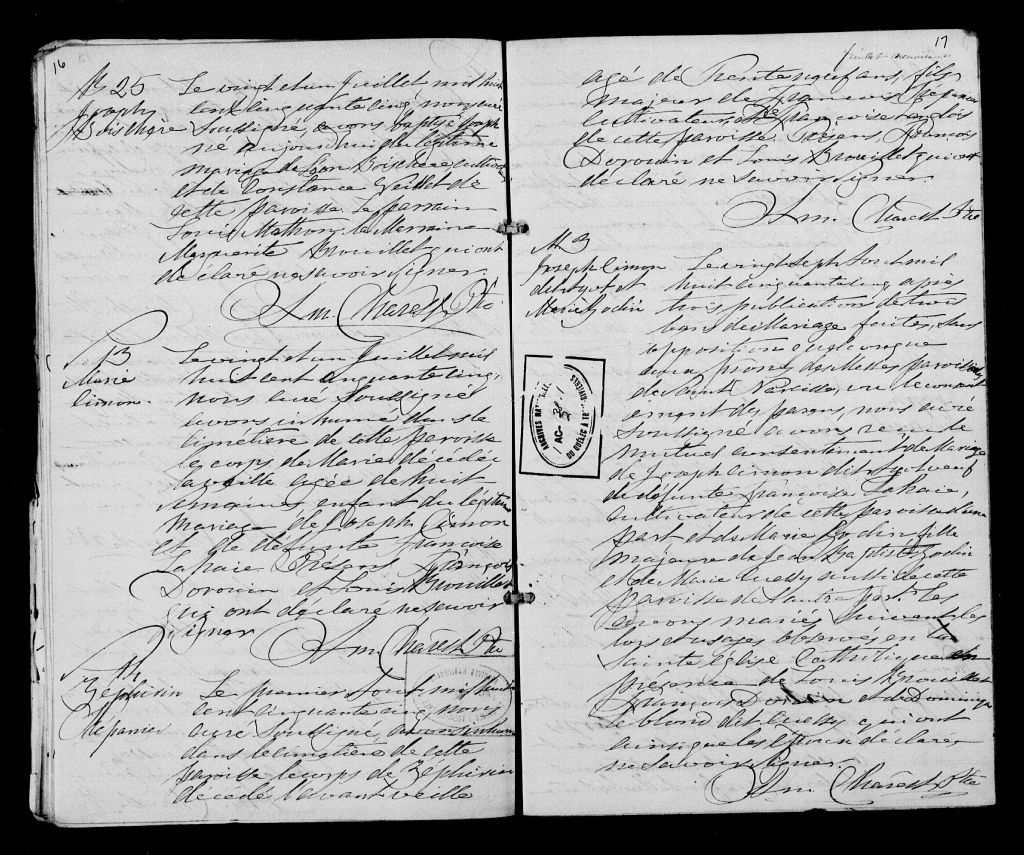 16
B 25
Joseph
Boisclaire
Le vingt et un Juillet, mil huit
cent cinquante cinq, nous curé
Soussigné, avons baptisé Joseph
né aujourd'hui du légitime
mariage de Léon Boisclaire cultivateur
et de Constance Veillet de
cette paroisse. Le parrain
Louis Mathon, la Marraine
Marguerite Brouillet qui ont
déclaré ne savoir signer.
Am. Charest Ptre
Marie
Cimon
Le vingt et un Juillet mil
huit cent cinquante cinq,
nous curé soussigné
avons inhumé dans le
cimetière de cette paroisse
le corps de Marie décédée
la veille agée de huit
semaines enfant du légitime
mariage de Joseph Cimon
et de défunte Françoise
Lahaie. Présens François
Dorouin et Louis Brouillet
qui ont déclaré ne savoir
signer
Am. Charest Ptre
Zéphirin
Trépanier
Le premier Aout, mil huit
cent cinquante cinq, nous
curé soussigné, avons inhumé
dans le cimetière de cette
paroisse le corps de Zéphirin
décédé l'avant veille
17
agé de trente neuf ans, fils
majeur de François Trépanier
cultivateur, et de Françoise
de cette paroisse. Présens François
Dorouin et Louis Brouillet qui ont
déclaré ne savoir signer.
Am. Charest Ptre
Joseph Cimon
dit et
Marie Godin
Le vingt Sept Aout mil
huit cinquante cinq après
trois publication de trois
bans de Mariage faites, sans
opposition quelconque
aux prônes des Messes paroissiales
de Saint Narcisse, vu le consent-
ement des parens, nous curé
soussigné avons reçu le
mutuel consentement de Mariage
de Joseph Cimon dit veuf
de défunte Françoise Lahaie,
cultivateur de cette paroisse d'une
part et de Marie Godin fille
majeure de Jean Baptiste Godin
et de Marie Quessy aussi de cette
paroisse de l'autre part. Les
avons mariés suivant les
lois et usages observés en la
Sainte Église Catholique en
présence de Louis Brouillet
François Dorouin et de Dominique
le blond dit Quessy qui ont
ainsi que les Epoux déclaré
ne savoir signer.
Am. Charest Ptre
ARCHIVES NATIONALES
DU QUÉBEC À TROIS-RIVIÈRES